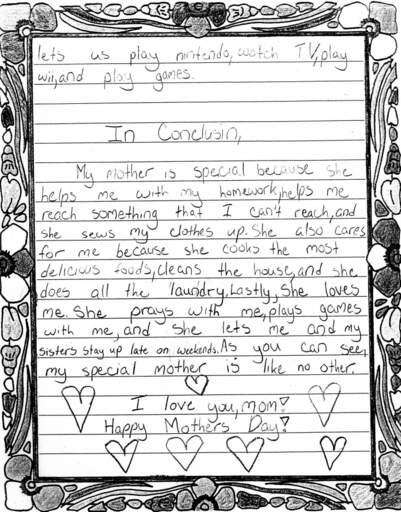 lets us play nintendo, watch TV, play
wii, and play games.
In Conclusin,
My mother is special because she
helps me with my homework, helps me
reach something that I can't reach, and
she sews my clothes up. She also cares
for me because she cooks the most
delicius foods, cleans the house, and she
does all the laundry. Lastly, She loves
me. She prays with me, plays games
with me, and she lets me and my
sisters stay up late on weekends. As you can see,
my special mother is like no other.
I love you, mom!
Happy Mothers Day!